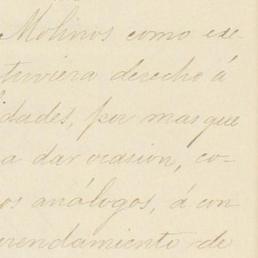 Molinos como exe-
tuviera derecho á
idades, por mas que
a dar ocasion, co-
os análogos, á con
rrendamiento de